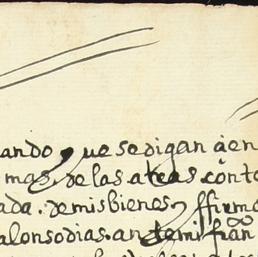 ando que se digan a en
mas. de las atras. conto
ada. de mis bienes y ffirmo
alonso dias. an temi fran